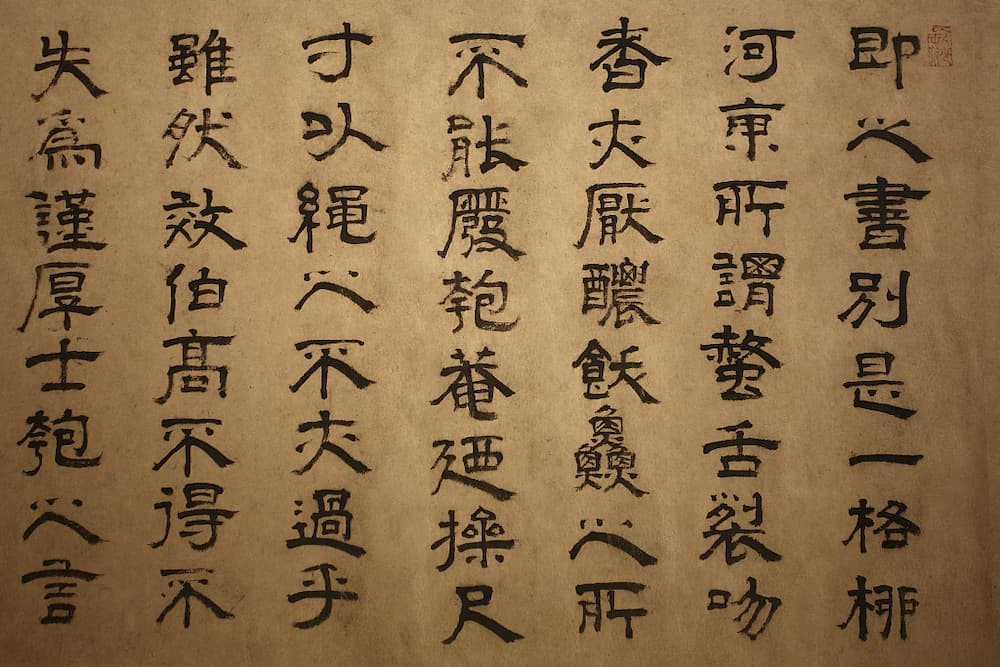 即之書別是一格柳
河東所謂螫舌裂吻
者亦厭醲飫鱻之所
不能廢匏菴廼操尺
寸以繩之不亦過乎
雖然效伯高不得不
失爲謹厚士匏之言